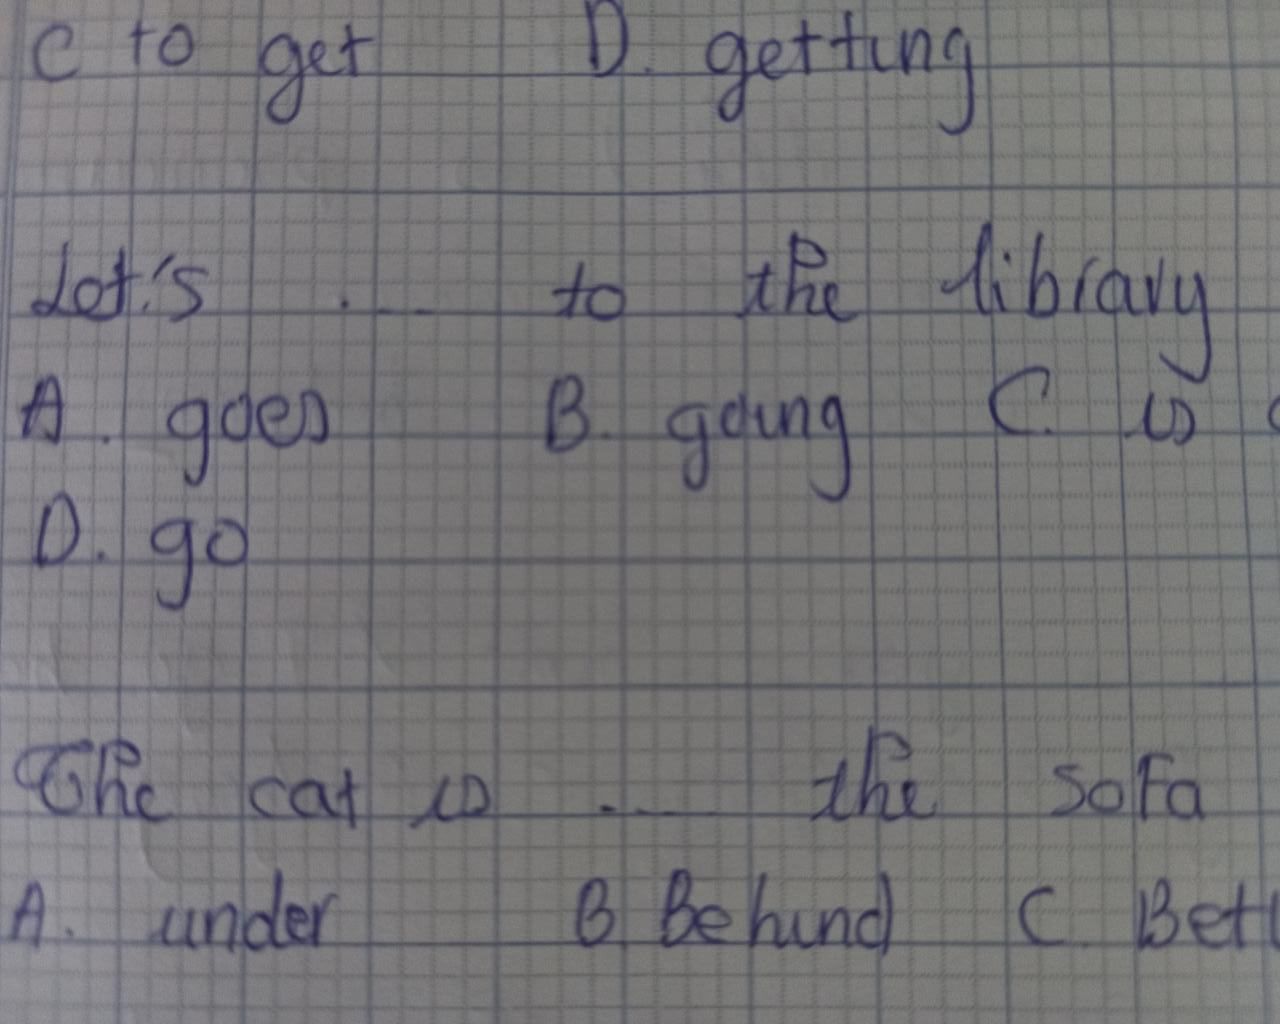 C to get D. getting
Let's ... to the library
A. goes B. going C. is
D. go
The cat is ... the sofa
A. under B Behind C.